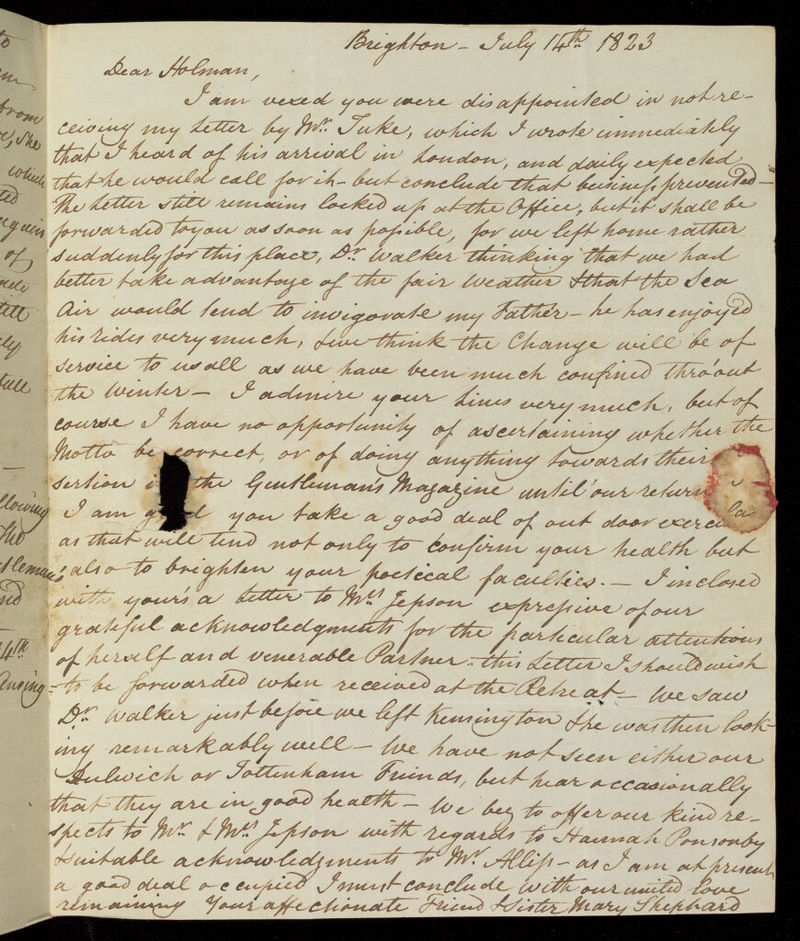 Brighton - July 14th 1823
Dear Holman,
I am vexed you were disappointed in not re-
ceiving my Letter by Mr. Tuke, which I wrote immediately
that I heard of his arrival in London, and daily expected
that he would call for it - but conclude that business prevented -
The Letter still remains locked up at the Office, but it shall be
forwarded to you as soon as possible, for we left home rather
suddenly for this place, Dr. Walker thinking that we had
better take advantage of the fair Weather & that the Sea
Air would tend to invigorate my Father - he has enjoyed
his rides very much, & we think the Change will be of
service to us all as we have been much confined thro'out
the Winter - I admire your Lines very much, but of
course I have no opportunity of ascertaining whether the
Motto be correct, or of doing anything towards their
sertion the Gentleman's Magazine until our return
I am you take a good deal of out door
as that will tend not only to confirm your health but
also to brighten your poetical faculties. - I inclosed
with your's a letter to Mrs. Jepson expressive of our
grateful acknowledgments for the particular attentions
of herself and venerable Partner - this Letter I should wish
to be forwarded when received at the Retreat - We saw
Dr. Walker just before we left Kensington & he was then look-
ing remarkably well - We have not seen either our
Dulwich or Tottenham Friends, but hear occasionally
that they are in good health - We beg to offer our kind re-
spects to Mr. & Mrs. Jepson with regards to Hannah Ponsonby
& suitable acknowledgments to Mr. Allis - as I am at present
a good deal occupied I must conclude with our united love
remaining Your affectionate Friend & Sister Mary Shephard